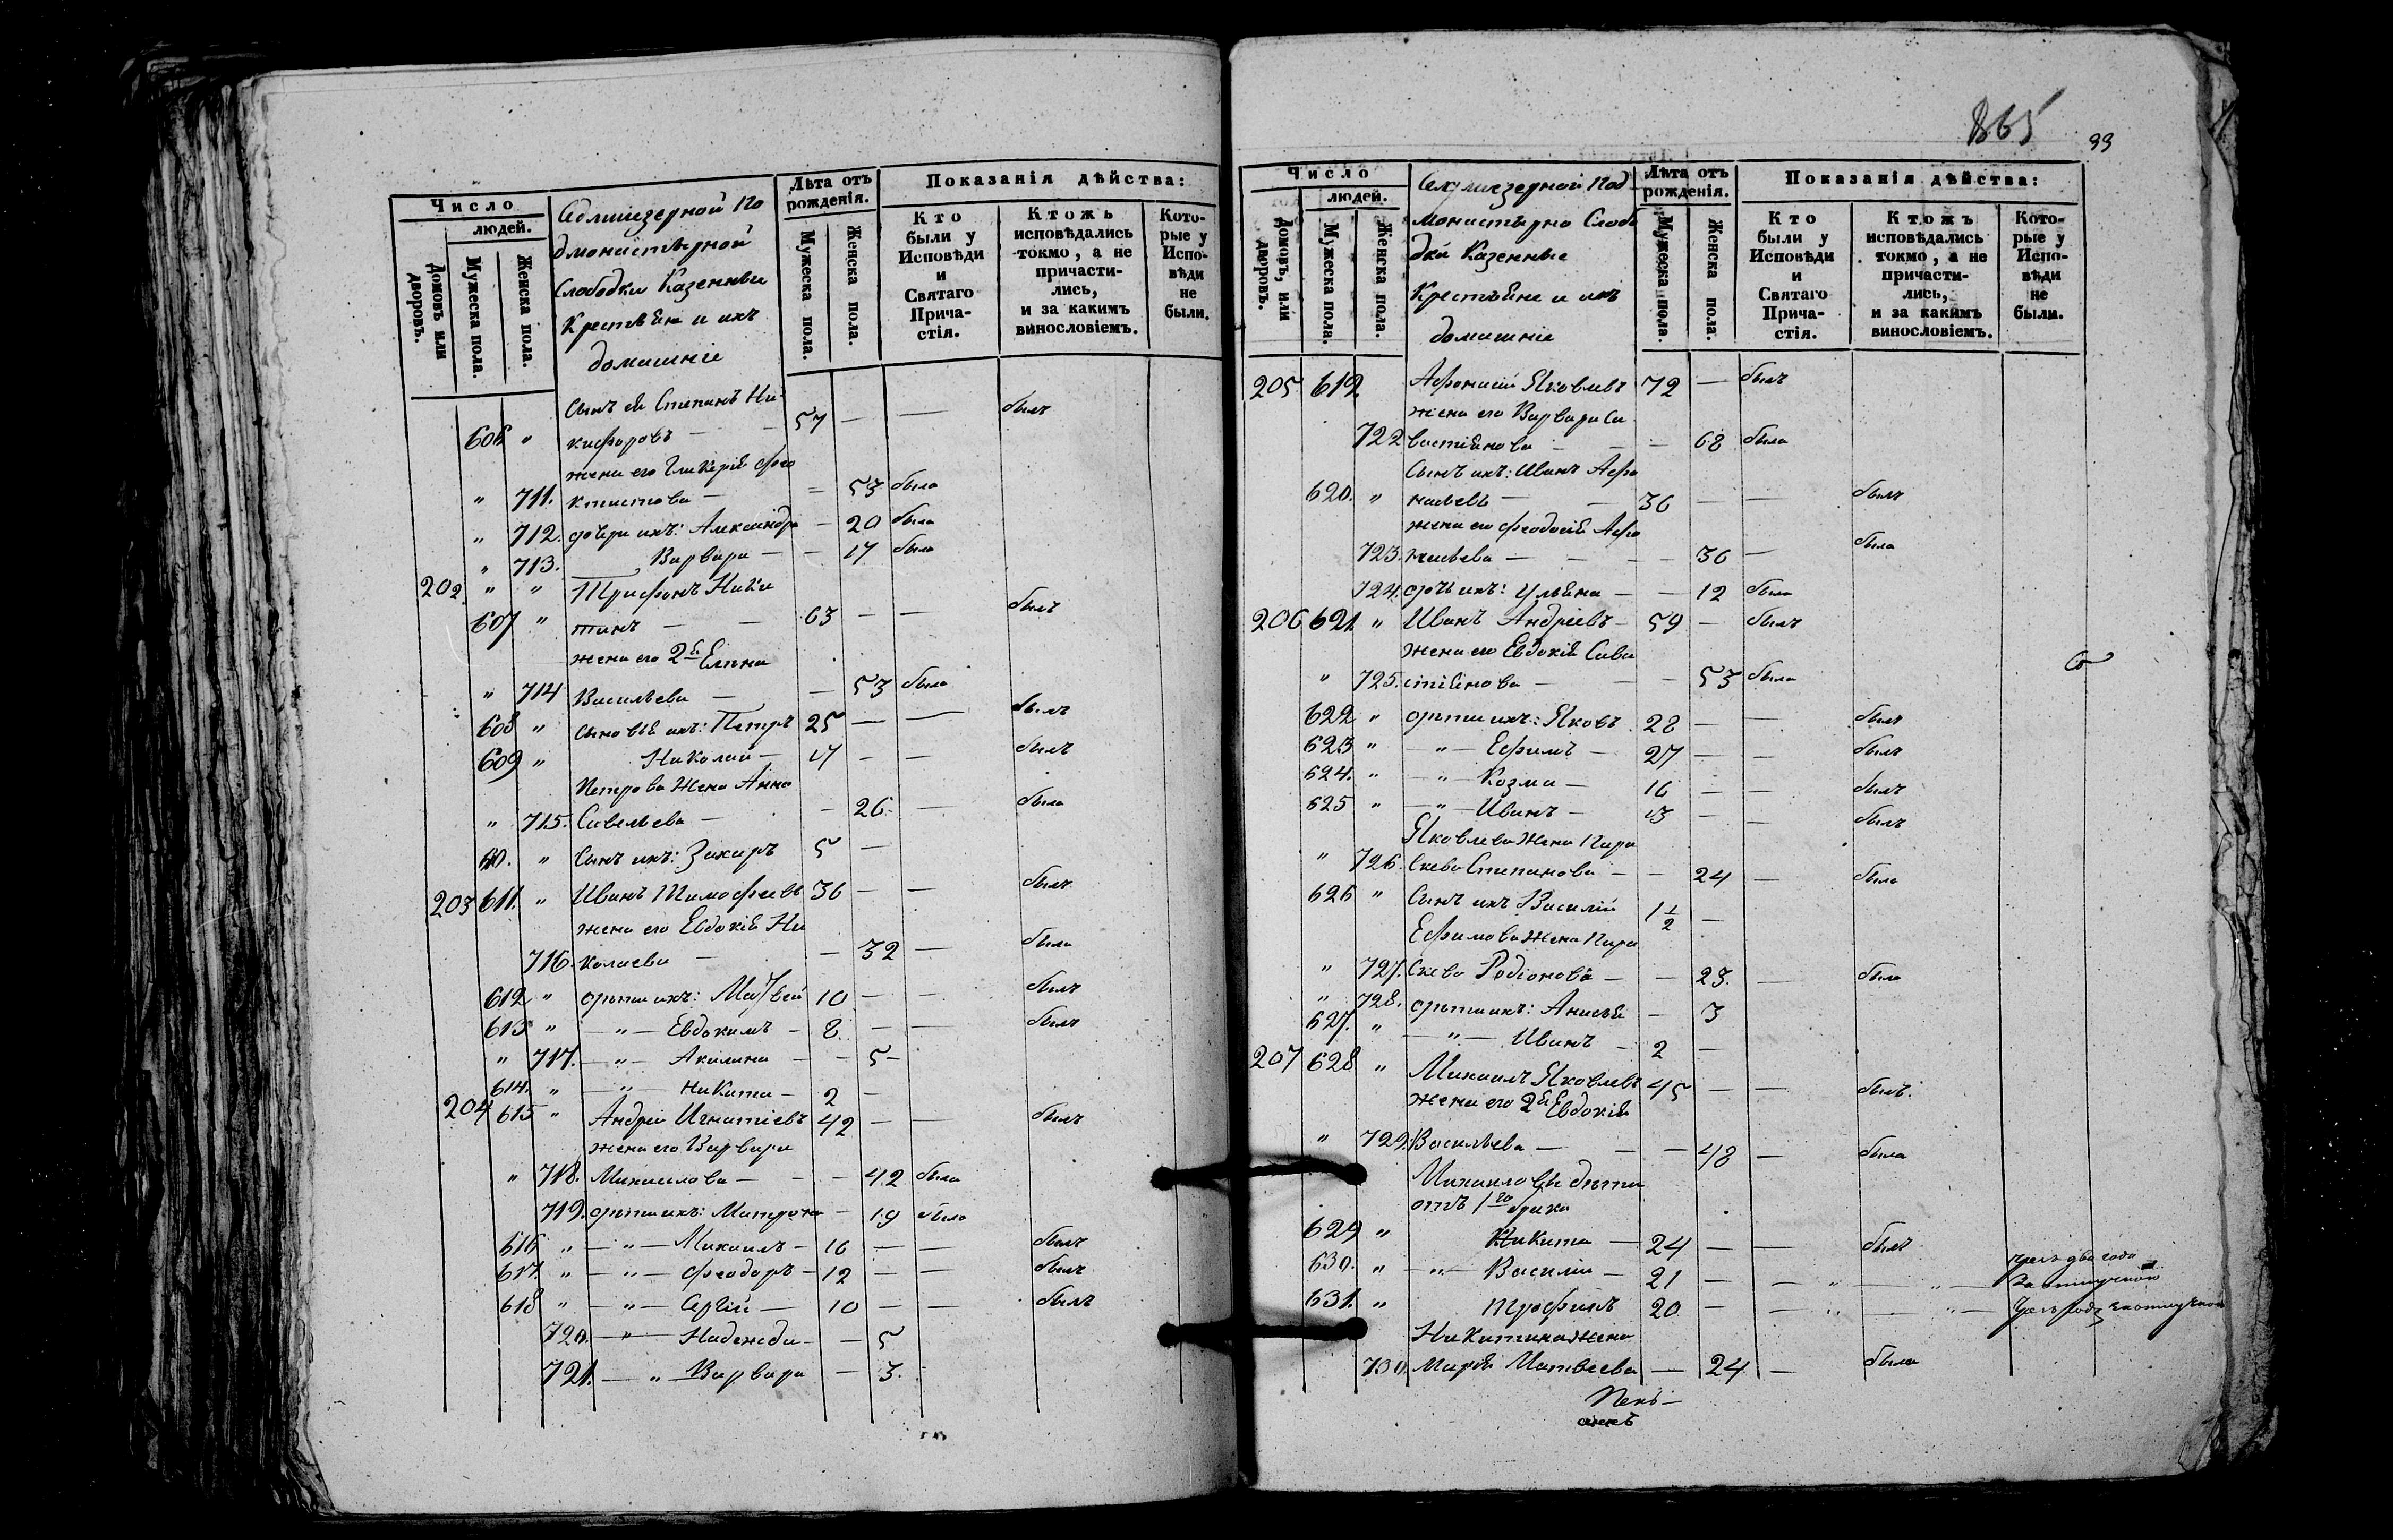 Число
людей.
Домовъ или дворовъ.
Мужеска пола.
Женска пола.
Седмиезерной По
дмонастырной
Слободки Казенные
Крестьяне и ихъ
домашніе
Лѣта отъ рожденія.
Мужеска пола.
Женска пола.
Показанія дѣйства:
Кто были у Исповѣди и Святаго Прича-стія.
Ктожъ исповѣдались токмо, а не причасти-лись, и за какимъ винословіемъ.
Кото-рые у Испо-вѣди не были.
Сынъ ея Степанъ Ни-
606 " кифоровъ — 57 — — былъ
жена его Гликерія Фео
" 711. ктистова — — 53 была
" 712. дочери ихъ: Александра — 20 была
" 713. Варвара — — 17 была
202 " " Трифонъ Ники
607 " тинъ — — 63 — — былъ
жена его 2я Елена
" 714 Васильева — — 53 была
608 " сыновья ихъ: Петръ 25 — — былъ
609 " Николай — 17 — — былъ
Петрова жена Анна
" 715. Савельева — — 26 — была
610. " Сынъ ихъ: Захаръ 5 —
203 611. " Иванъ Тимофеевъ 36 — — былъ
жена его Евдокія Ни
716. колаева — — 32 — была
612 " дѣти ихъ: Матвей 10 — — былъ
613 " — " — Евдокимъ — 8. — — былъ
" 717. — " — Акилина — — 5 —
614. " — " — Никита — 2 —
204 615 " Андрей Игнатіевъ 42 — — былъ
жена его Варвара
" 718. Михаилова — — — 42 была
719. дѣти ихъ: Матрона — 19 была
616 " — " — Михаилъ — 16 — — былъ
617. " — " — Феодоръ — 12 — — былъ
618 " — " — Сергій — 10 — — былъ
720. — " — Надежда — — 5
721. — " — Варвара — 3.
865
99
Число
людей.
Домовъ, или дворовъ.
Мужеска пола.
Женска пола.
Седмиезерной Под
монастырно Слобо
дки Казенные
Крестьяне и ихъ
домашніе
Лѣта отъ рожденія.
Мужеска пола.
Женска пола.
Показанія дѣйства:
Кто были у Исповѣди и Святаго Прича-стія.
Ктожъ исповѣдались токмо, а не причасти-лись, и за какимъ винословіемъ.
Кото-рые у Испо-вѣди не были.
205 619. Афонасій Яковлевъ 72 — былъ
жена его Варвара Са
722 вастіянова — — — 68 была
Сынъ ихъ: Иванъ Афо
620. " насьевъ — — 36 — — былъ
жена его Феодосія Афо
723. насьева — — — — 36 — была
724. дочь ихъ: Ульяна — — 12 была
206 621 " Иванъ Андреевъ — 59 — былъ
жена его Евдокія Сава
" 725. стіянова — — — 53 была
622 " дѣти ихъ: Яковъ. 28 — — былъ
623 " — " — Ефимъ — 27 — — былъ
624. " — " — Козма — 16 — — былъ
625 " — " — Иванъ — 13 — — былъ
Яковлева жена Пара
" 726. скева Степанова — — 24 — была
626 " Сынъ ихъ Василій 1 1/2 —
Ефимова жена Пара
" 727. скева Родіонова — — 23. — была
" 728. дѣти ихъ: Анисья — 3
627. " — " — Иванъ — 2 —
207 628 " Михаилъ Яковлевъ 45 — — былъ.
жена его 2я Евдокія
" 729. Васильева — — — 48 — была
Михаиловы дѣти
отъ 1го брака
629 " Никита — 24 — — былъ
630. " — " — Василій — 21 — — " — " — два года
за отлучкой
631. " Трофимъ 20 — — " — " — годъ за отлучкой
Никитина жена
730. Марія Матвеева — 24 — была